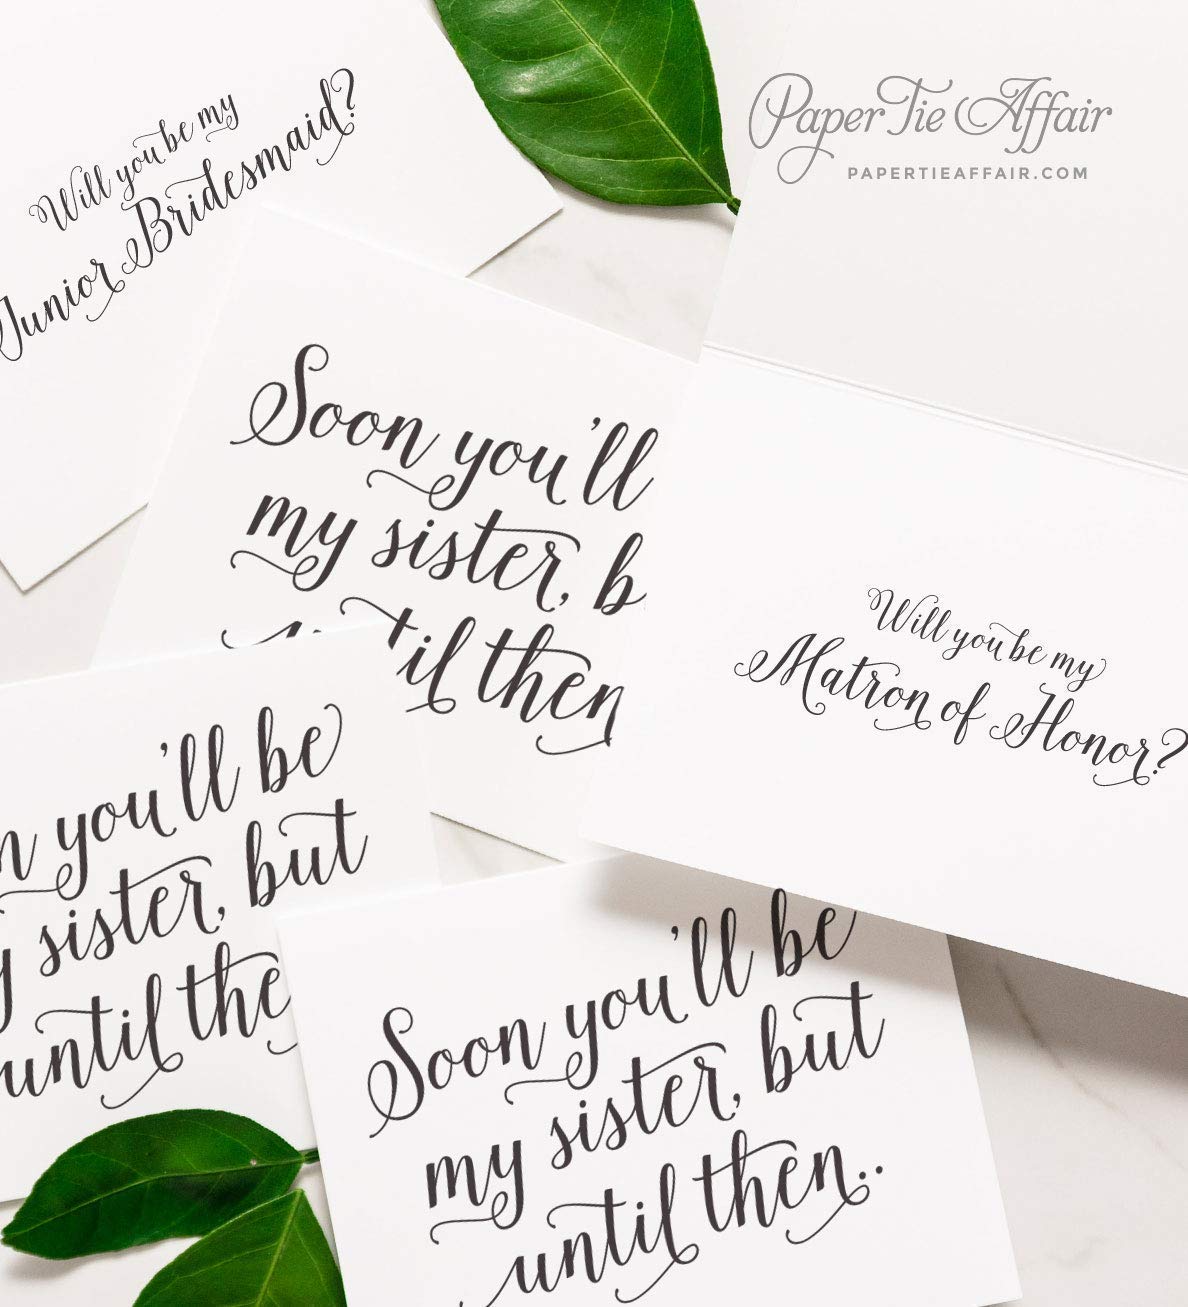 Paper Tie Affair
PAPERTIEAFFAIR.COM
Will you be my
Junior Bridesmaid?
Soon you'll
my sister, b
until then
Will you be my
Matron of Honor?
n you'll be
y sister, but
until the
Soon you'll be
my sister, but
until then..